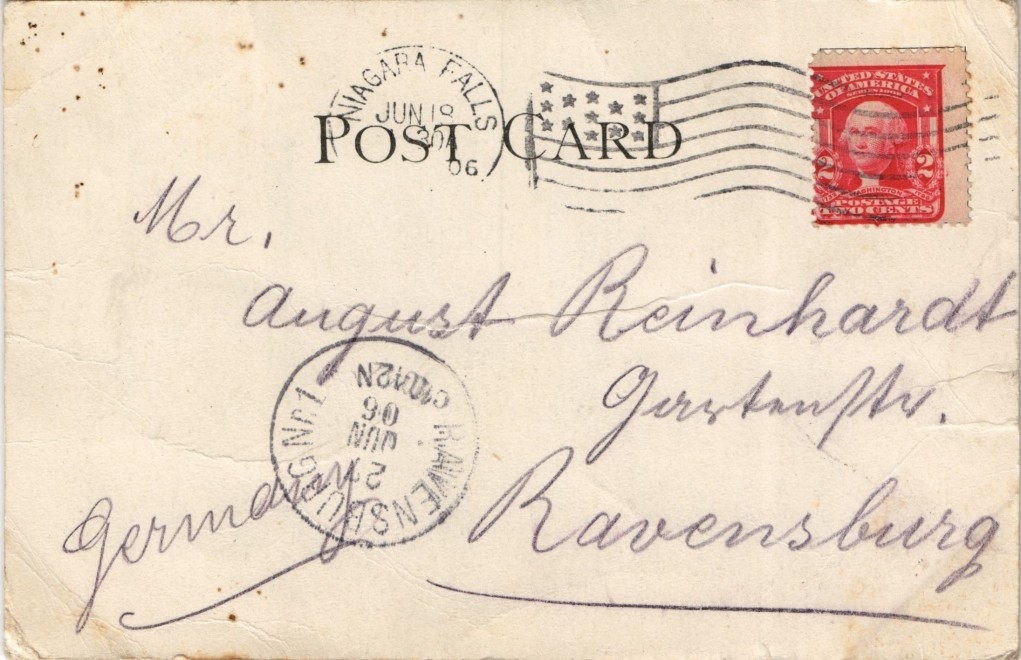 NIAGARA FALLS
JUN 18
06
POST CARD
UNITED STATES
OF AMERICA
2 2
WASHINGTON
POSTAGE
TWO CENTS
Mr.
August Reinhardt
Gartenstr.
Ravensburg
Germany
RAVENSBURG No.1
JUN
06